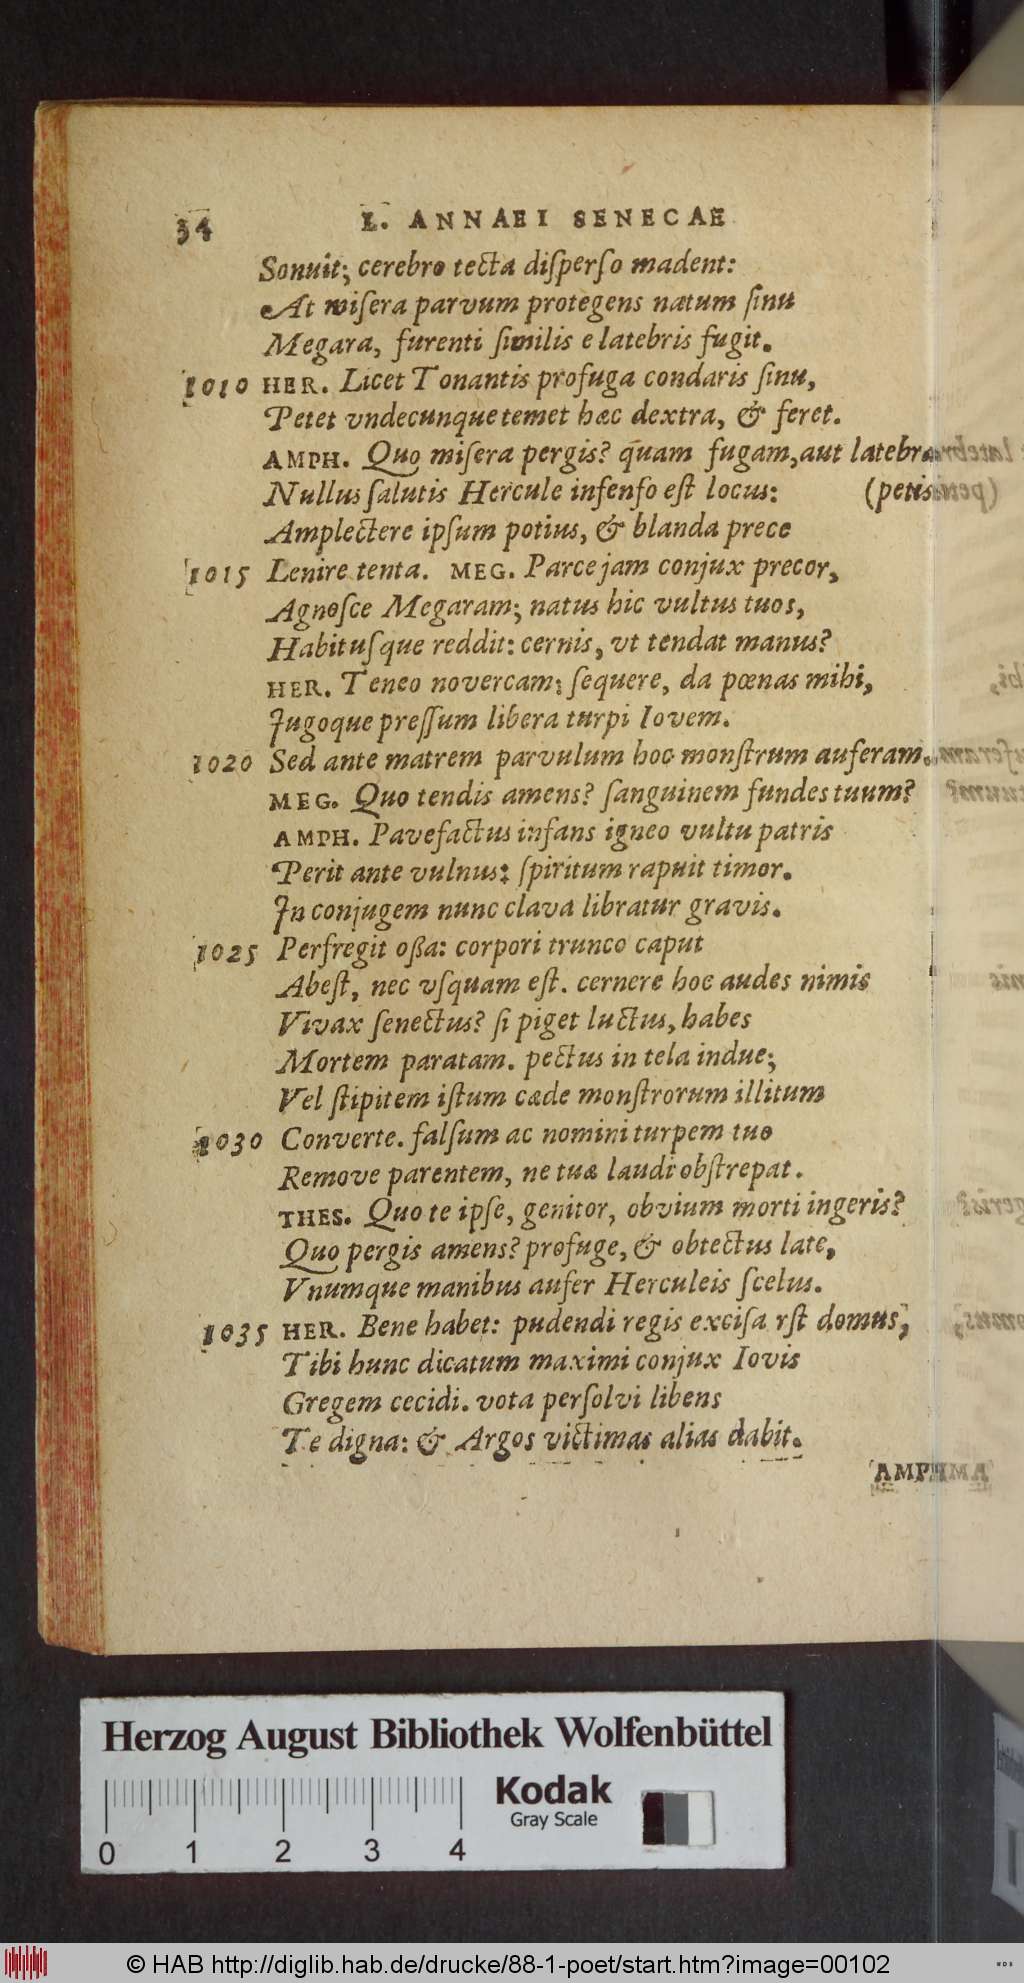 34 L. ANNAEI SENECAE
Sonuit; cerebro tecta diſperſo madent:
At miſera parvum protegens natum ſinu
Megara, furenti ſimilis e latebris fugit.
1010 HER. Licet Tonantis profuga condaris ſinu,
Petet vndecunque temet hæc dextra, & feret.
AMPH. Quo miſera pergis? quam fugam, aut latebra
Nullus ſalutis Hercule infenſo eſt locus: (petis
Amplectere ipſum potius, & blanda prece
1015 Lenire tenta. MEG. Parce jam conjux precor,
Agnoſce Megaram; natus hic vultus tuos,
Habituſque reddit: cernis, vt tendat manus?
HER. Teneo novercam; ſequere, da pœnas mihi,
Jugoque preſſum libera turpi Iovem.
1020 Sed ante matrem parvulum hoc monſtrum auferam.
MEG. Quo tendis amens? ſanguinem fundes tuum?
AMPH. Pavefactus infans igneo vultu patris
Perit ante vulnus: ſpiritum rapuit timor.
In conjugem nunc clava libratur gravis.
1025 Perfregit oßa: corpori trunco caput
Abeſt, nec vſquam eſt. cernere hoc audes nimis
Vivax ſenectus? ſi piget luctus, habes
Mortem paratam. pectus in tela indue;
Vel ſtipitem iſtum cæde monſtrorum illitum
1030 Converte. falſum ac nomini turpem tuo
Remove parentem, ne tuæ laudi obſtrepat.
THES. Quo te ipſe, genitor, obvium morti ingeris?
Quo pergis amens? profuge, & obtectus late,
Vnumque manibus aufer Herculeis ſcelus.
1035 HER. Bene habet: pudendi regis exciſa rſt domus,
Tibi hunc dicatum maximi conjux Iovis
Gregem cecidi. vota perſolvi libens
Te digna: & Argos victimas alias dabit.
AMPH
Herzog August Bibliothek Wolfenbüttel
Kodak
Gray Scale
0 1 2 3 4
© HAB http://diglib.hab.de/drucke/88-1-poet/start.htm?image=00102